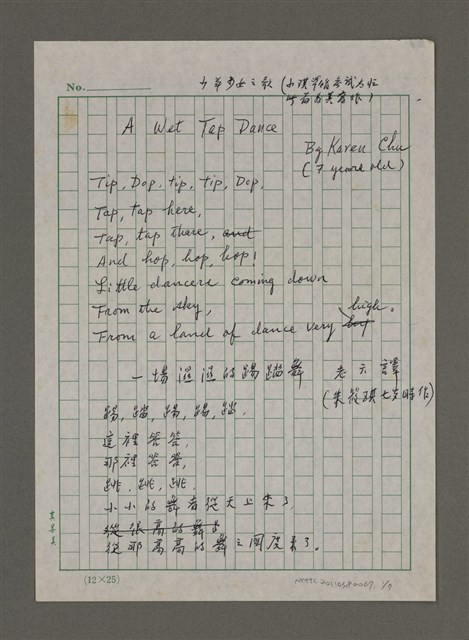 No.
A Wet Tap Dance
By Karen Chu
(7 years old)
Tip, Dop, tip, tip, Dop,
Tap, tap here,
Tap, tap there, and
And hop, hop, hop!
Little dancers coming down
From the sky,
From a land of dance very high.
一場濕濕的踢踏舞 老六譯
(朱筱琪七岁時作)
踢,踏,踢,踢,踏.
這裡答答,
那裡答答,
跳,跳,跳.
小小的舞者從天上來了
從很高的舞
從那高高的舞之國度來了。
(12×25)